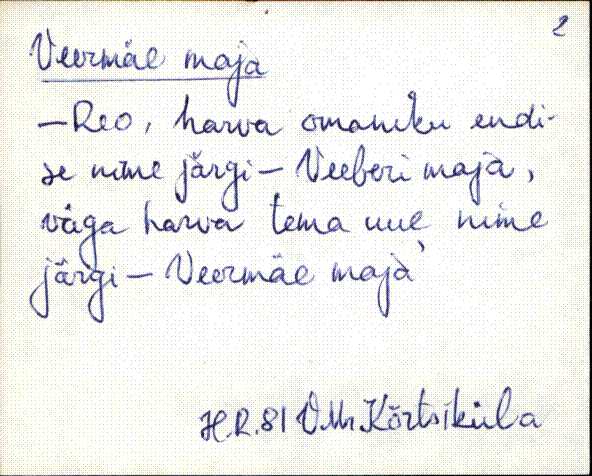 2
Veermäe maja
—Reo, harva omaniku endi-
se nime järgi — Veeberi maja,
väga harva tema uue nime
järgi — Veermäe maja
H.R. 81 VMr Kõrtsiküla